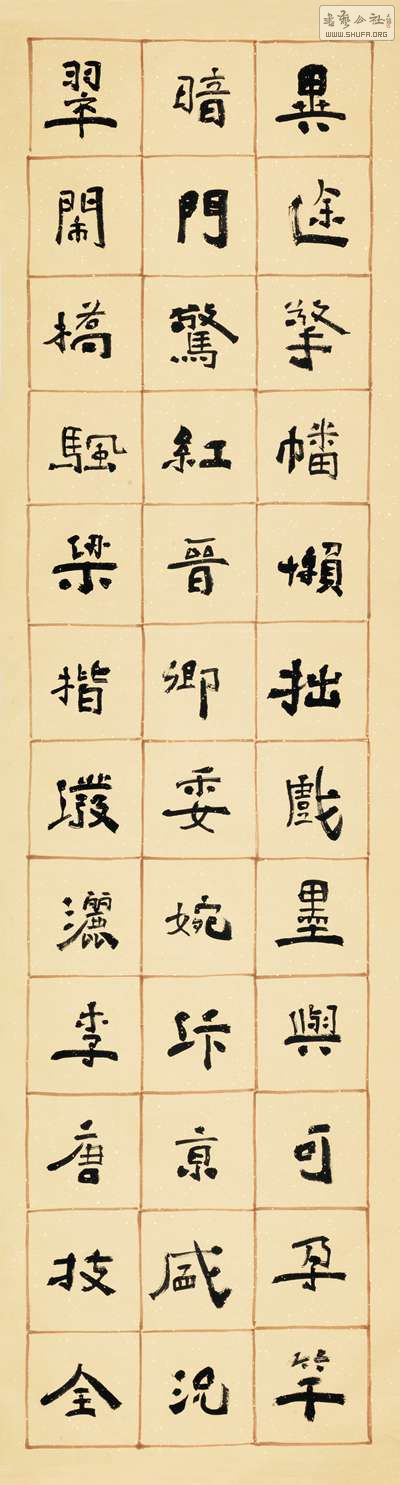 異途擎幡懶拙戲墨與可孕竿
暗門驚紅晉卿委婉汴京盛況
翠閙橋颿梁楷潑灑李唐技全
書藝公社
WWW.SHUFA.ORG